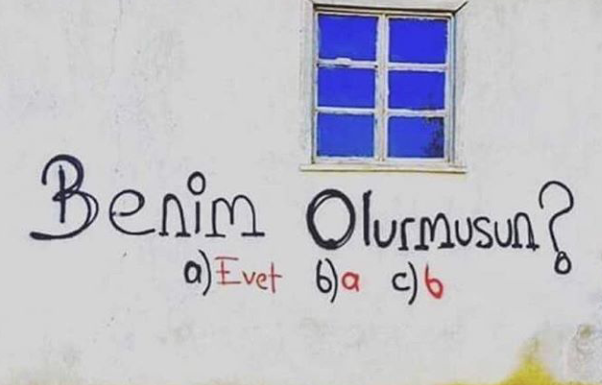 Benim Olurmusun?
a)Evet b)a c)b